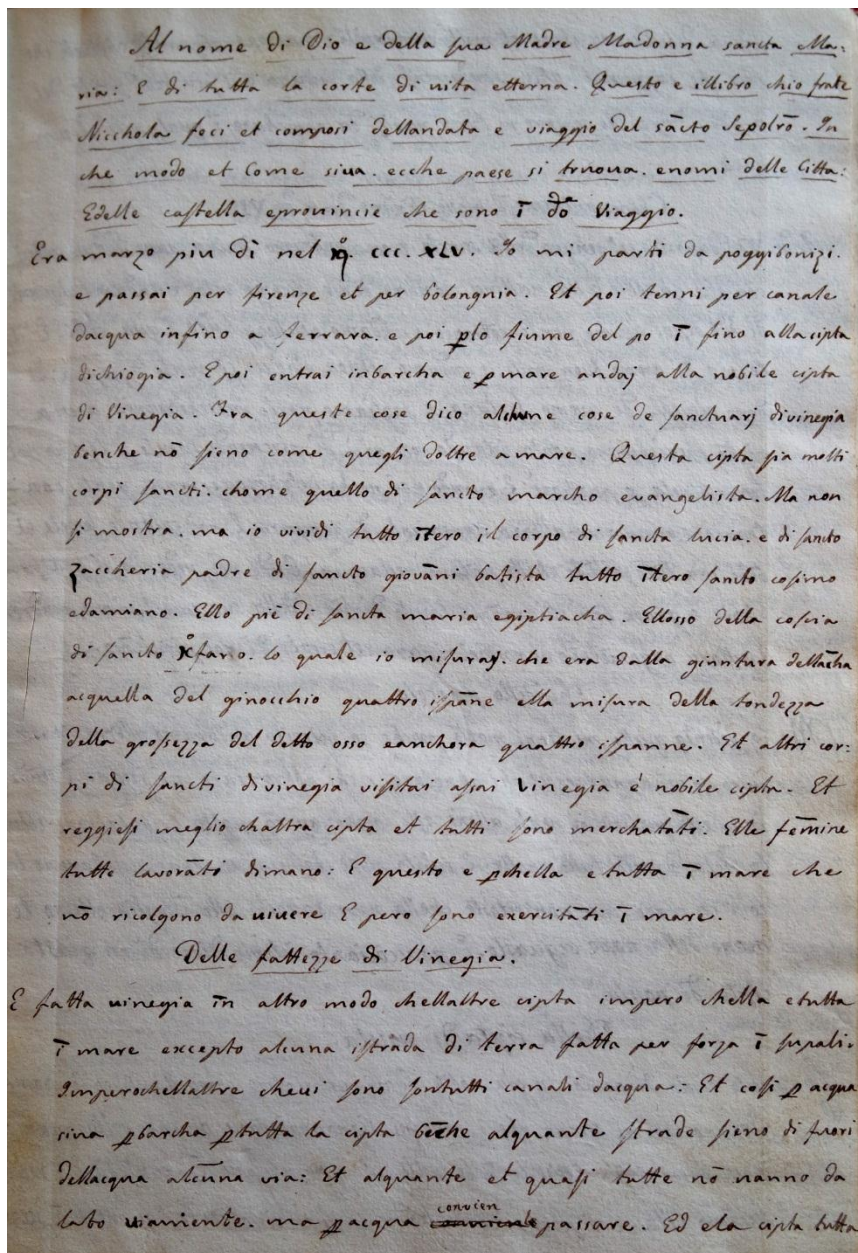 Al nome di Dio e della sua Madre Madonna sancta Ma:
ria: E di tutta la corte di uita etterna. Questo e illibro chio frate
Nicchola feci et composi dellandata e viaggio del sācto Sepolcrō. In
che modo et Come siua. ecche paese si truoua. enomi delle Citta:
Edelle castella eprouincie che sono ī dō Viaggio.
Era marzo piu dì nel . ccc. XLV. Io mi parti da poggibonizi.
e passai per firenze et per bolongnia. Et poi tenni per canale
dacqua infino a ferrara. e poi ꝑlo fiume del po ī fino alla cipta
dichiogia. E poi entrai inbarcha e ꝑ mare andaj alla nobile cipta
di Vinegia. Fra queste cose dico alchune cose de sanctuarj divinegia
benche nō sieno come quegli doltre a mare. Questa cipta sia molti
corpi sancti. chome quello di sancto marcho evangelista. Ma non
si mostra. ma io vividi tutto ītero il corpo di sancta lucia. e di sancto
zaccheria padre di sancto giovāni batista tutto ītero sancto cosimo
edamiano. Ello piē di sancta maria egiptiacha. Ellosso della coscia
di sancto Xfano. lo quale io misuraj. che era dalla giuntura dellācha
acquella del ginocchio quattro ispāne ella misura della tondezza
della grossezza del detto osso eanchora quattro ispanne. Et altri cor:
pi di sancti divinegia visitai assai Vinegia è nobile cipta. Et
reggiesi meglio chaltra cipta et tutti sono merchatāti. Elle fēmine
tutte lavorāti dimano: E questo e ꝑchella e tutta ī mare che
nō ricolgono da uiuere E pero sono exercitāti ī mare.
Delle fattezze di Vinegia.
E fatta uinegia īn altro modo chellaltre cipta impero chella etutta
ī mare excepto alcuna istrada di terra fatta per forza ī supali.
Imperochellaltre cheui sono sontutti canali dacqua: Et cosi ꝑ acqua
siua ꝑbarcha ꝑtutta la cipta bēche alquante strade sieno di fuori
dellacqua alcuna via: Et alquante et quasi tutte nō uanno da
lato uiamente. ma ꝑ acqua convien passare. Ed ela cipta tutta